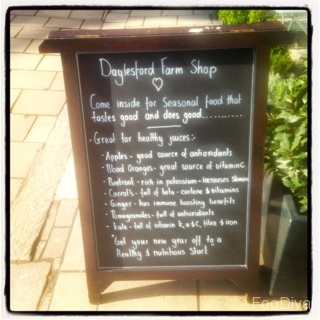 Daylesford Farm Shop
Come inside for Seasonal food that
tastes good and does good...........
- Great for healthy juices:-
- Apples - good source of antioxidants
- Blood Oranges - great source of vitamin C
- Beetroot - rich in potassium - increases Stamina
- Carrot's - full of beta-carotene & vitamins
- Ginger - has immune boosting benefits
- Pomegranates - full of antioxidants
- Kale - full of vitamin K, a & C, fibre & iron
"Get your new year off to a
Healthy & nutritious Start
FooDiva